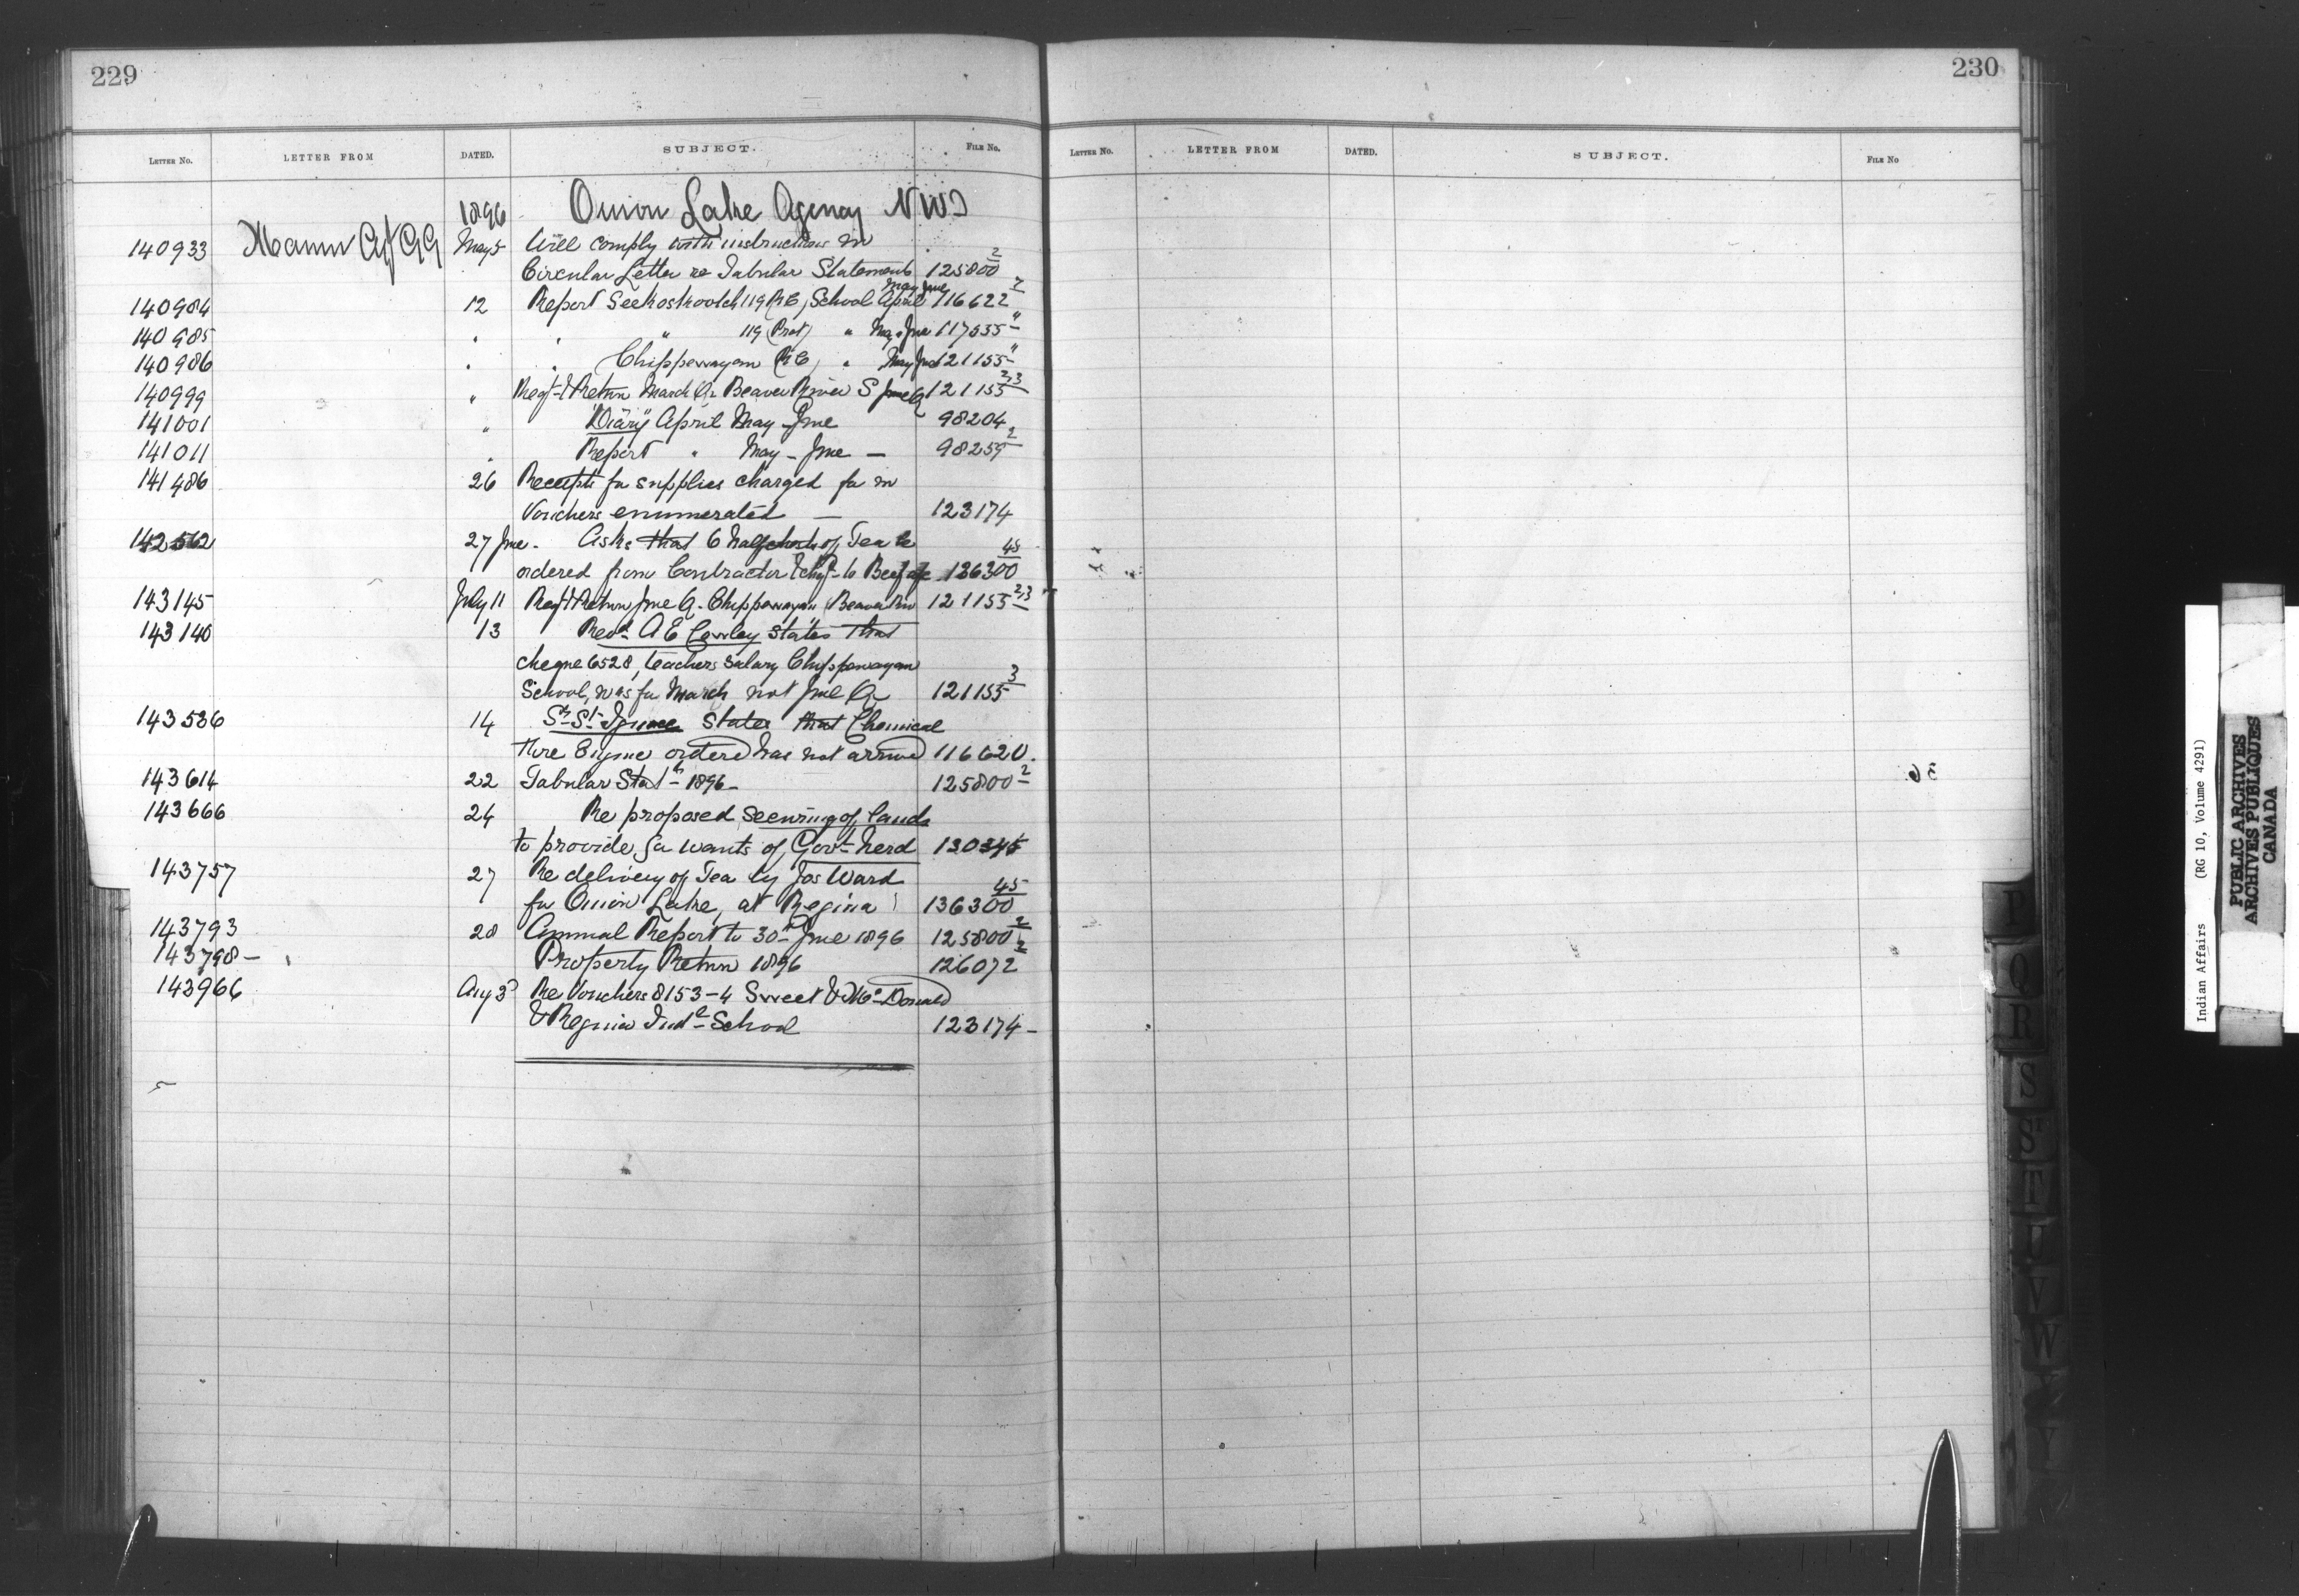 229
LETTER NO. LETTER FROM DATED. SUBJECT. FILE NO.
1896 Onion Lake Agency NWT
140933 Mann May 5 Will comply with instructions in
Circular Letter re Tabular Statements 125800-2
May June
140984 12 Report Seekaskootch 119 (RC) School April 116622-2
140985 " " " 119 (Prot) " May - June 117535-"
140986 " " Chippewayan (RC) " May June 121155-"
140999 " Reqt & Return March Qr Beaver River S June Q 121155-2,3
141001 " "Diary" April May June 98204
141011 " Report " May - June — 98259-2
141486 26 Receipts for supplies charged for in
Vouchers enumerated — 123174
142562 27 June - Asks that 6 half chests of Tea be
ordered from Contractor to Beef 136300-45
143145 July 11 Reqt & Return June Q. Chippewayan Beaver Riv 121155-2,3
143140 13 Revd A E Cowley states that
cheque 6528, teachers salary Chippewayan
School, was for March not June Qr 121155-3
143536 14 Sr St Ignace states that Chemical
Fire Engine ordered has not arrived 116620.
143614 22 Tabular Statt 1896 - 125800-2
143666 24 Re proposed securing of lands
to provide for wants of Govt herd 130345
143757 27 Re delivery of Tea by Jos Ward
for Onion Lake, at Regina 136300-45
143793 28 Annual Report to 30th June 1896 125800-2
143798 - Property Return 1896 126072-2
143966 Aug 3 Re Vouchers 8153-4 Sweet & McDonald
& Regina Indl School 123174 -
230
LETTER NO. LETTER FROM DATED. SUBJECT. FILE NO
Q
R
S
T
U
V
W
Y
Indian Affairs (RG 10, Volume 4291)
PUBLIC ARCHIVES
ARCHIVES PUBLIQUES
CANADA